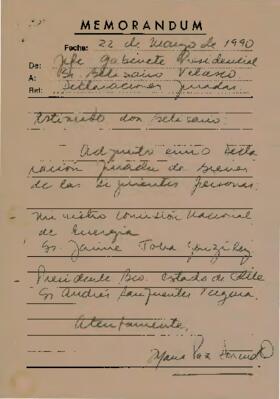 MEMORANDUM
Fecha: 22 de Marzo de 1990
De: Jefe Gabinete Presidencial
A: Sr. Belisario Velasco
Ref: Declaraciones Juradas
Estimado don Belisario:
Adjunto envío Decla
ración jurada de bienes
de las siguientes personas:
Ministro Comisión Nacional
de Energía
Sr. Jaime Tohá González
Presidente Bco. Estado de Chile
Sr Andrés Sanfuentes Vergara.
Atentamente,
María Paz